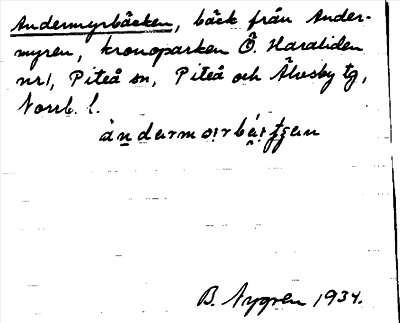 Andermyrbäcken, bäck från Ander-
myren, kronoparken Ö. Haraliden
nr 1, Piteå sn, Piteå och Älvsby tg,
Norrb. l.
B. Nygren 1934.